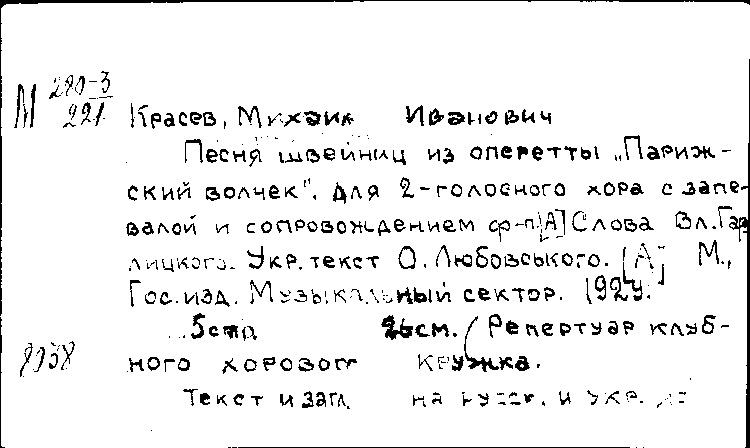 М 280-3/221 Красев, Михаил Иванович
Песня швейниц из оперетты „Париж-
ский волчек". Для 2-голосного хора с запе-
валой и сопровождением ф-п[А] Слова Вл. Гар
лицкого. Укр. текст О. Любовського. [А] М.,
Гос. изд. Музыкальный сектор. 192
5 стр 26 см. (Репертуар клуб-
8038 ного хорового кружка.
Текст и загл на русск. и укр.